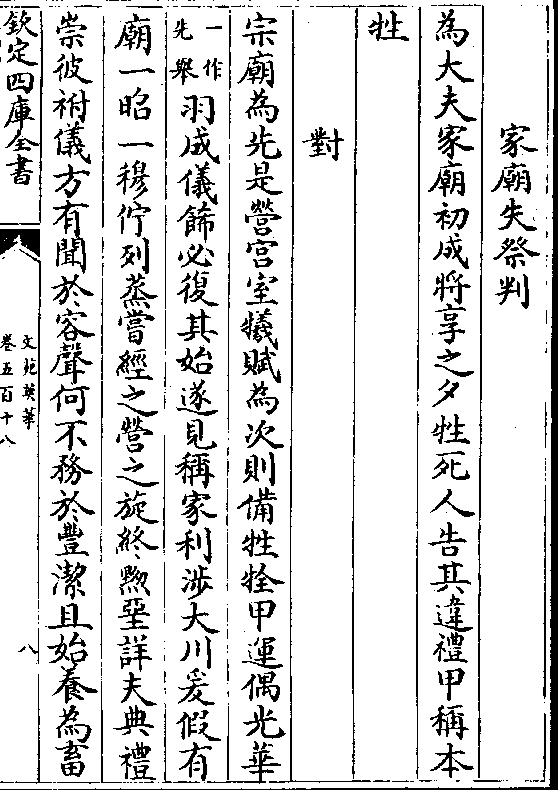 家廟失祭判
為大夫家廟初成將享之夕牲死人告其違禮甲稱本
牲
對
宗廟為先是營宮室犧賦為次則備牲牷甲運偶光華
一作先舉羽成儀飾必復其始遂見稱家利涉大川爰假有
廟一昭一穆佇列蒸嘗經之營之旋終黝堊詳夫典禮
崇彼祔儀方有聞於容聲何不務於豐潔且始養為畜
欽定四庫全書
文苑英華
卷五百十八
八